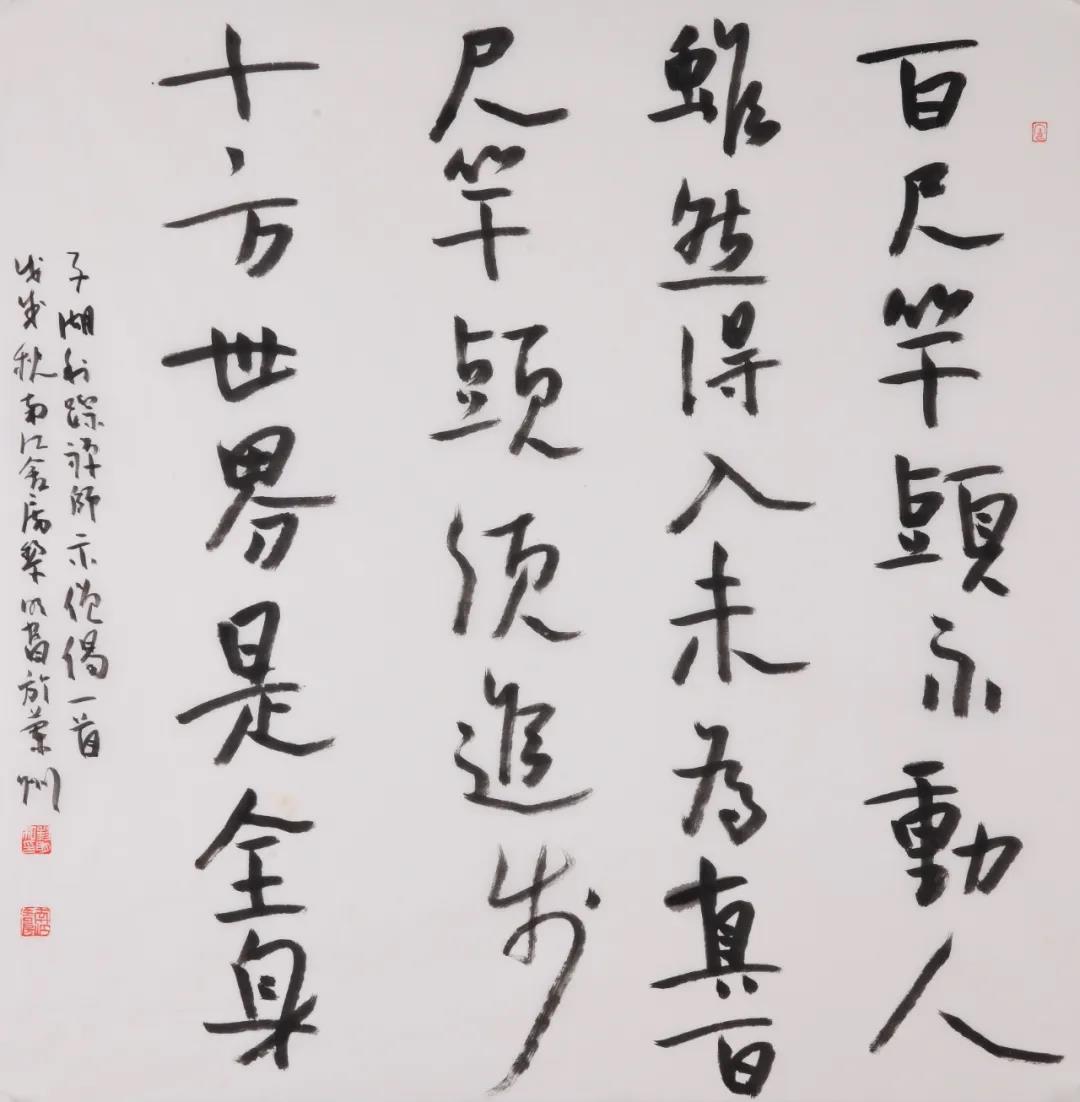 百尺竿頭動人
雖然得入未為真百
尺竿頭須進步
十方世界是全身
子湖利蹤禪師示偈一首
戊戌秋南江於蘭州